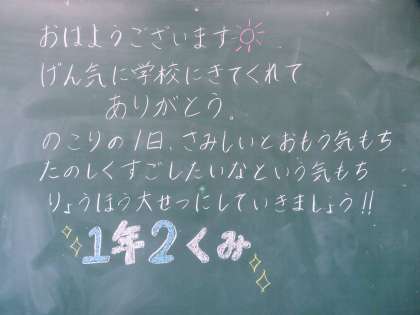 おはようございます
げん気に学校にきてくれて
ありがとう。
のこりの1日、さみしいとおもう気もち
たのしくすごしたいなという気もち
りょうほう大せつにしていきましょう!!
1年2くみ